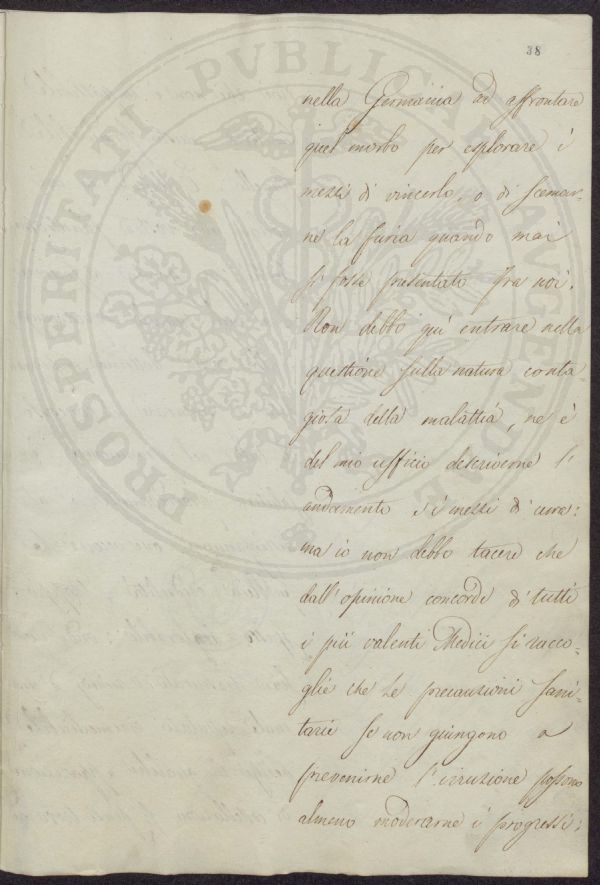 38
nella Germania ad affrontare
quel morbo per esplorare i
mezzi di vincerlo, o di scemar-
ne la furia quando mai
si fosse presentato fra noi.
Non debbo quì entrare nella
questione sulla natura conta
giosa della malattia, ne è
del mio ufficio descriverne l'
andamento e i mezzi di cura:
ma io non debbo tacere che
dall'opinione concorde di tutti
i più valenti Medici si racco-
glie che le precauzioni sani-
tarie se non giungono a
prevenirne l'irruzione possono
almeno moderarne i progressi;
PROSPERITATI PVBLICAE AVGENDAE